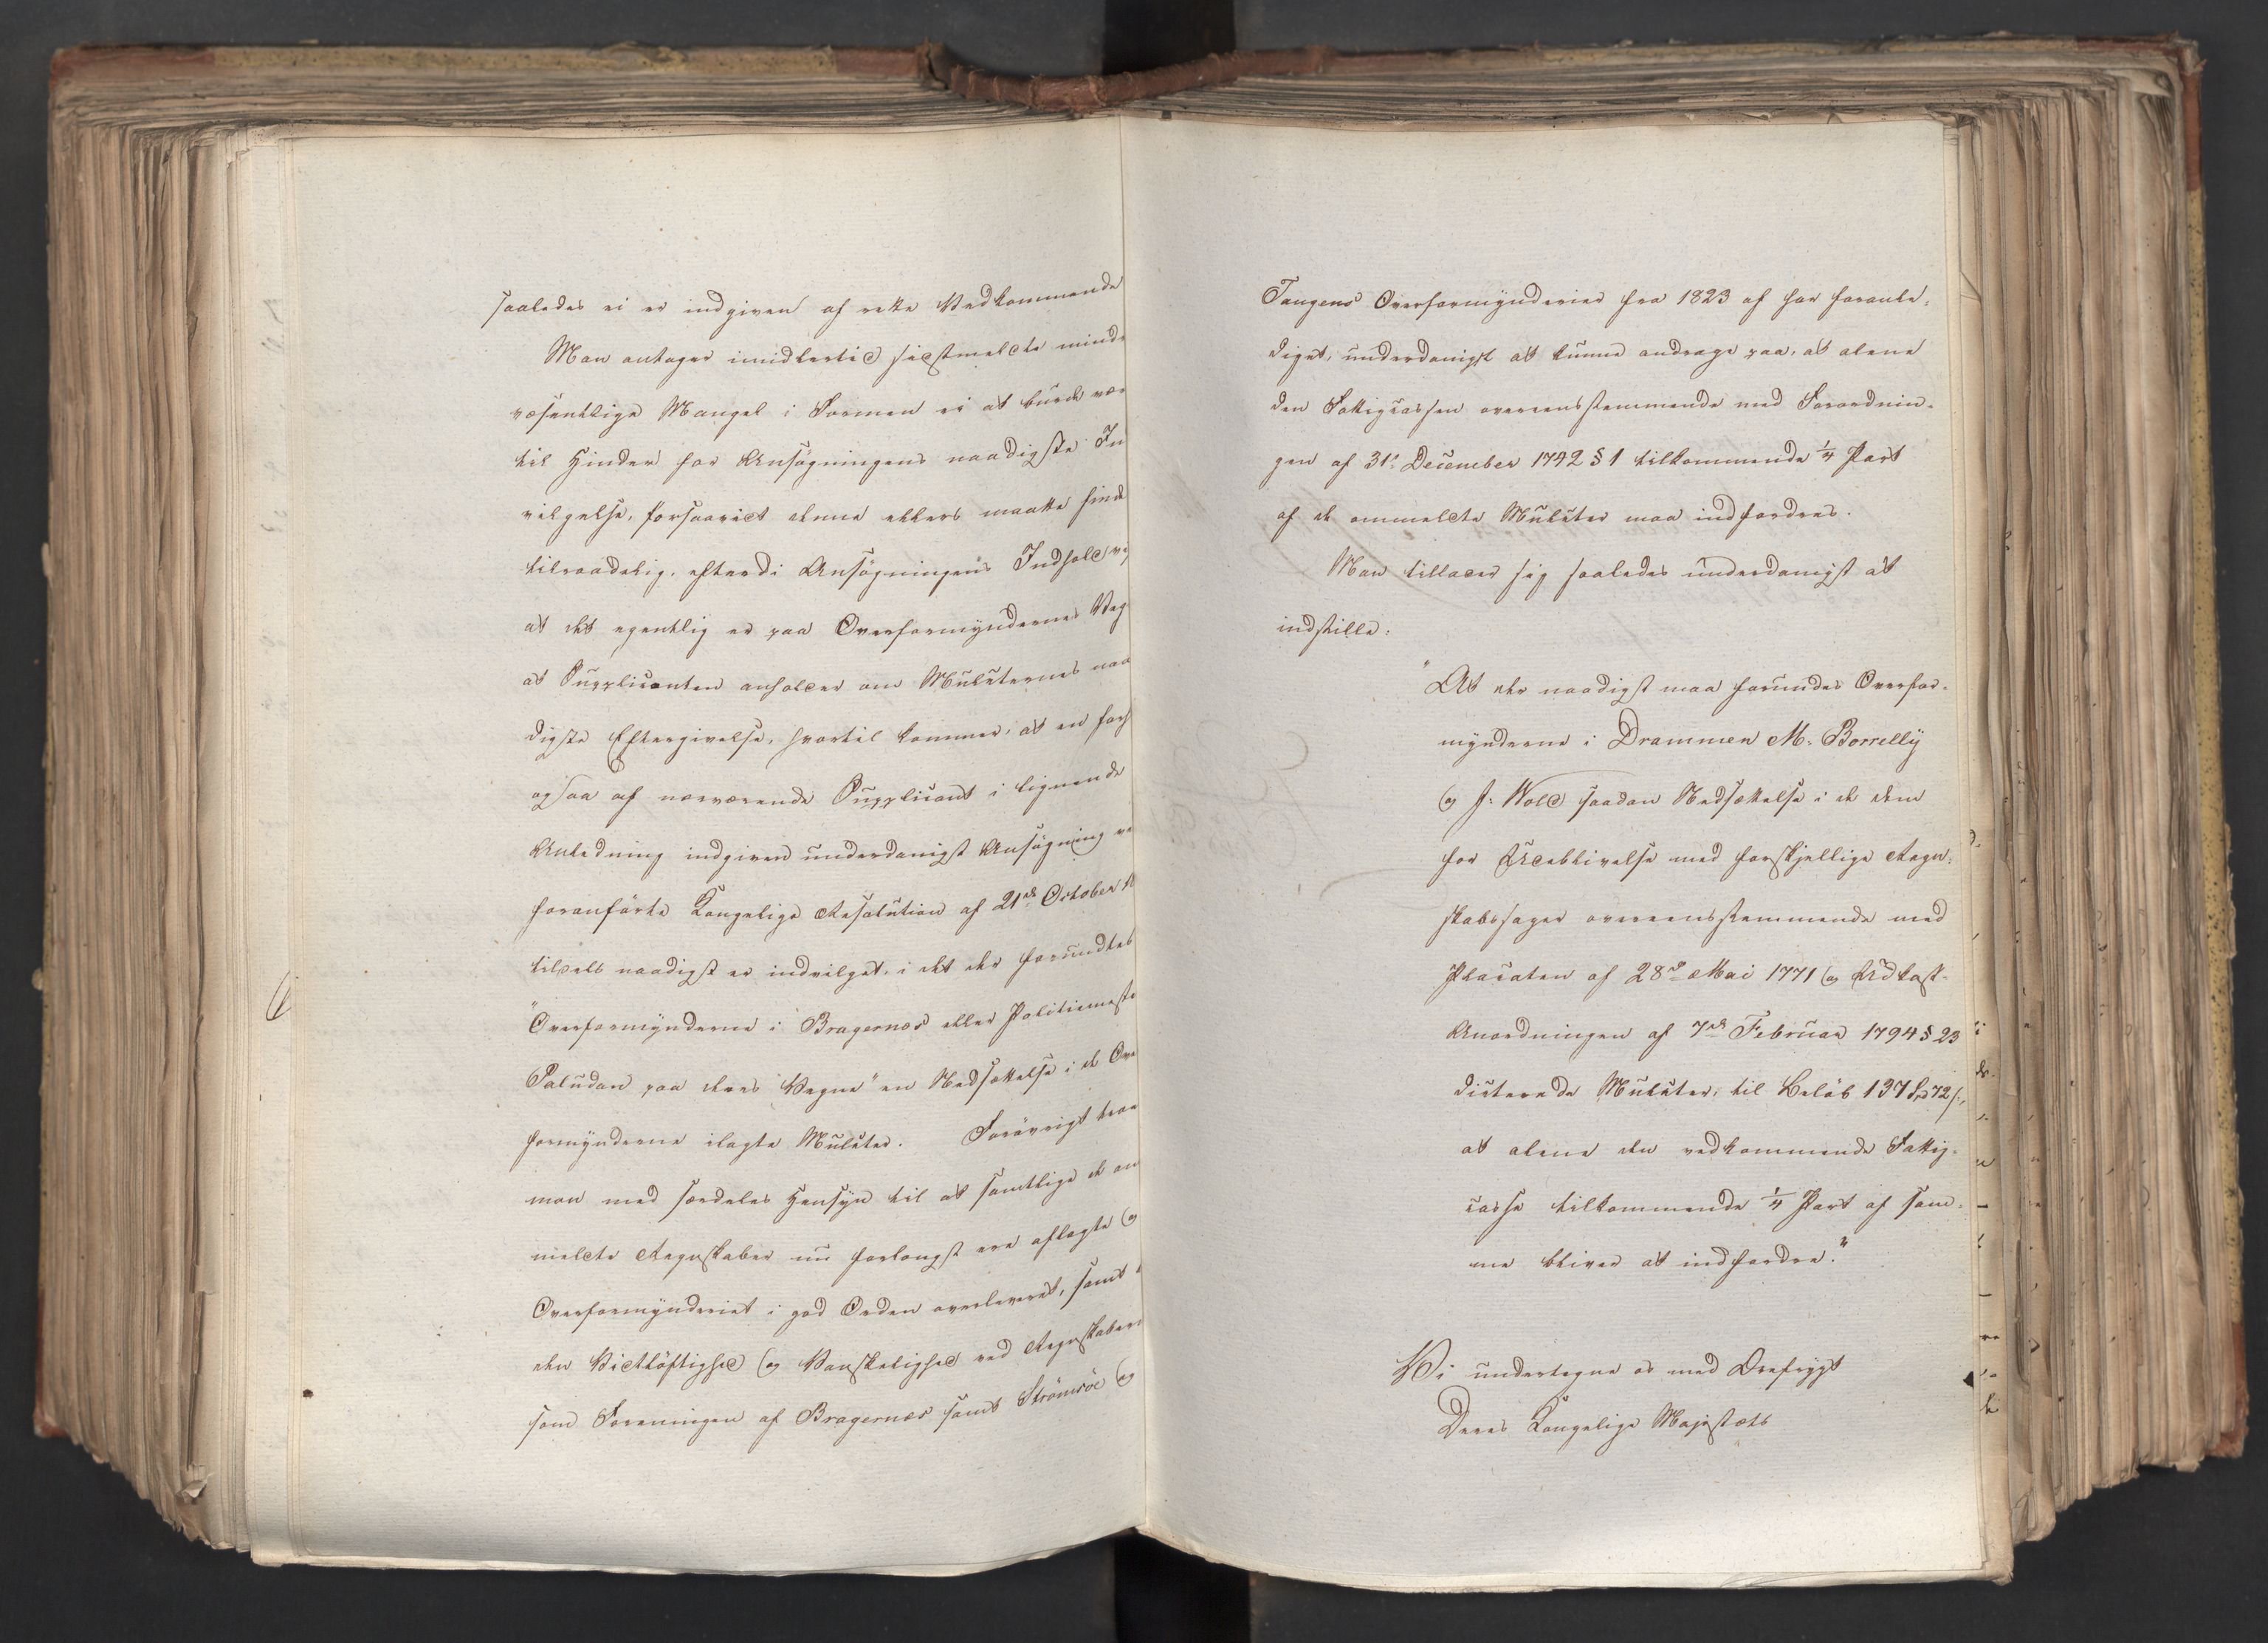 saaledes ei er indgiven af rette Vedkommende
Man antager imidlertid sidstmeldte mindr
væsentlige Mangel i Formen ei at burde vær
til Hinder for Ansøgningens naadigste In
vilgelse, forsaavidt denne ellers maatte find
tilraadelig, efterdi Ansøgningens Indhold vi
at det egentlig er paa Overformyndernes Veg
at Supplicanten anholder om Mulcternes naa
digste Eftergivelse, hvortil kommer, at en forh
ogsaa af nærværende Supplicant i lignende
Anledning indgiven underdanigst Ansøgning ve
foranførte Kongelige Resolution af 21de October 18
tildels naadigst er indvilget, i det der forundtes
"Overformynderne i Bragernæs eller Politiemeste
Paludan paa deres Vegne" en Nedsættelse i de Ove
formynderne ilagte Mulcter. Forøvrigt troe
man med særdeles Hensyn til at samtlige de om
meldte Regnskaber nu forlængst ere aflagte og
Overformynderiet i god Orden overleveret, samt
den Vidtløftighed og Vanskelighed ved Regnskabern
som Foreningen af Bragernæs samt Strømsøe og
Tangens Overformynderier fra 1823 af har foranle-
diget, underdanigst at kunne andrage paa, at alene
den Fattigcassen overeensstemmende med Forordnin-
gen af 31te December 1742 § 1 tilkommende 1/4 Part
af de ommeldte Mulcter maa indfordres.
Man tillader sig saaledes underdanigst at
indstille:
"At der naadigst maa forundes Overfor-
mynderne i Drammen M. Borrelly
og J. Wold saadan Nedsættelse i de dem
for Udeblivelse med forskjellige Regn-
skabssager overeensstemmende med
Placaten af 28de Mai 1771 og Udkast-
Anordningen af 7de Februar 1794 § 23
dicterede Mulcter, til Beløb 137 Spd 72 s,
at alene den vedkommende Fattig-
casse tilkommende 1/4 Part af sam-
me bliver at indfordre."
Vi undertegne os med Ærefrygt
Deres Kongelige Majestæts